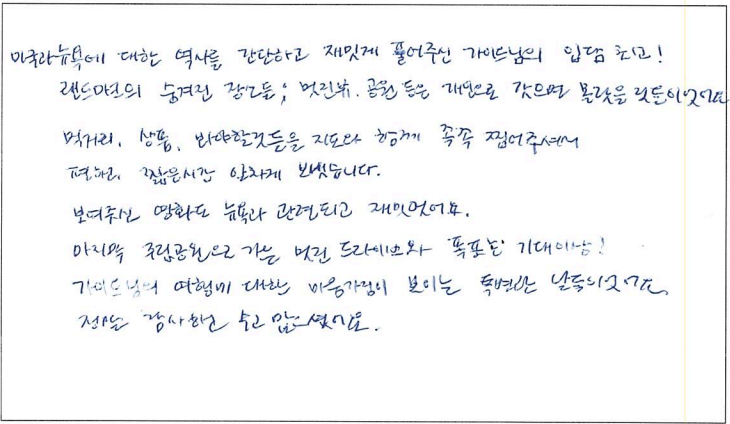 미국과 뉴욕에 대한 역사를 간단하고 재밌게 풀어주신 가이드님의 입담 최고!
랜드마크의 숨겨진 장소들, 멋진뷰. 공원 등은 개인으로 갔으면 몰랐을 것들이었어요
먹거리, 상품, 봐야할것들을 지도와 함께 콕콕 찝어주셔서
편하고, 짧은시간 알차게 보냈습니다.
보여주신 영화도 뉴욕과 관련되고 재밌었어요.
마지막 주립공원으로 가는 멋진 드라이브와 폭포는 기대이상!
가이드님의 여행에 대한 마음가짐이 보이는 특별한 날들이었어요.
정말 감사하고 수고 많으셨어요.